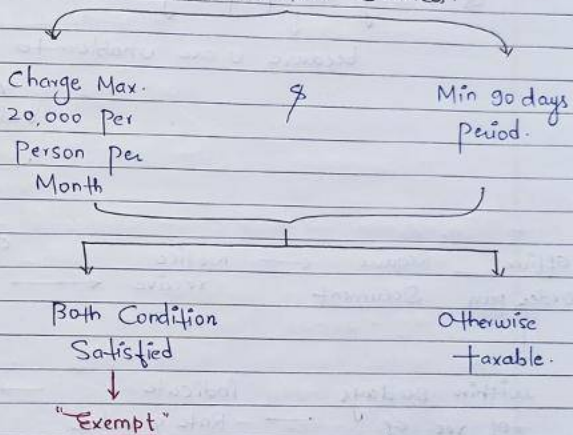 Charge Max.
20,000 Per
Person Per
Month
&
Min 90 days
Period.
Both Condition
Satisfied
"Exempt"
Otherwise
taxable.